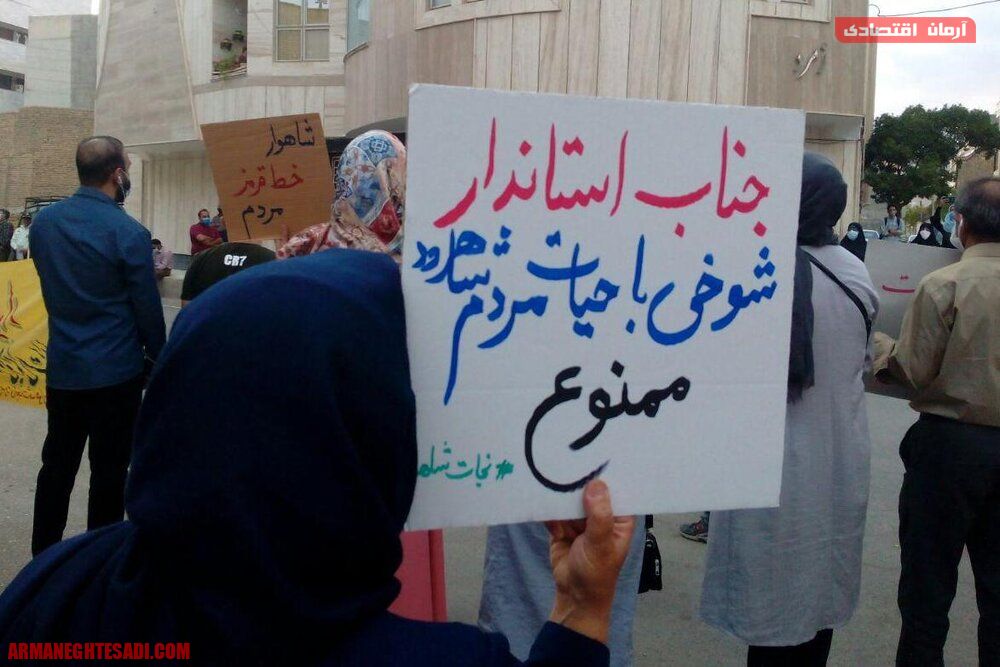 آرمان اقتصادی
جناب استاندار
شوخی با حیات مردم شاهرود
ممنوع
#نجات شاه
شاهوار
خط قرمز
مردم
CR7
ARMANEGHTESADI.COM